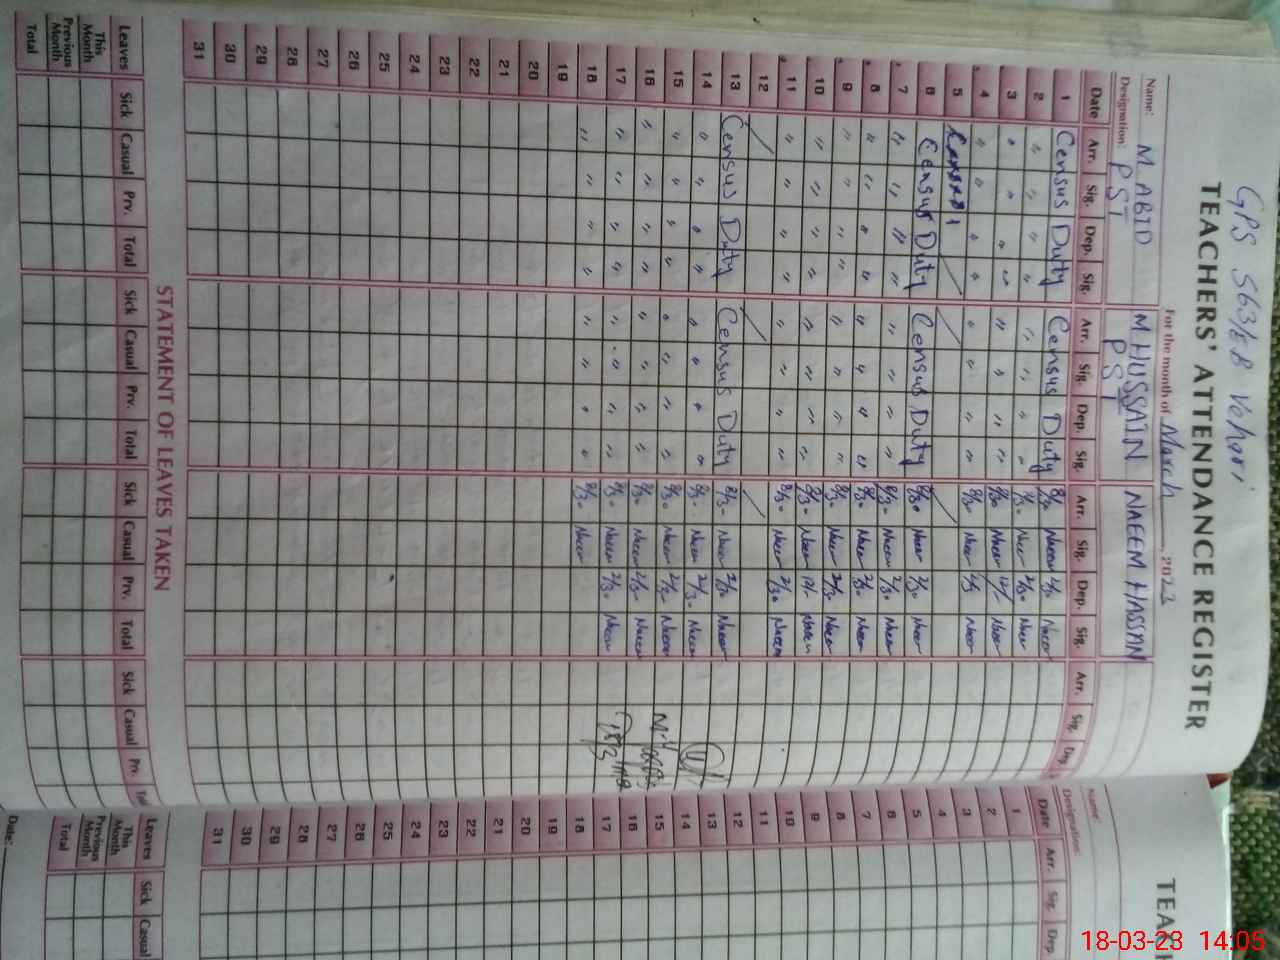 GPS 563/EB Vehari
TEACHERS' ATTENDANCE REGISTER
For the month of March, 2023
Name: M. ABID M. HUSSAIN NAEEM HASSAN
Designation: PST PST
Date Arr. Sig. Dep. Sig. Arr. Sig. Dep. Sig. Arr. Sig. Dep. Sig. Arr. Sig. Dep.
1 Census Duty Census Duty 8/30 Naeem 2/30 Naeem
2 〃 〃 〃 〃 〃 〃 〃 〃 8/30 Naeem 2/30 Naeem
3 〃 〃 〃 〃 〃 〃 〃 〃 8/30 Naeem 12/- Naeem
4 〃 〃 〃 〃 〃 〃 〃 〃 8/30 Naeem 2/30 Naeem
5
6 Census Duty Census Duty 8/30 Naeem 2/30 Naeem
7 〃 〃 〃 〃 〃 〃 〃 〃 8/30 Naeem 2/30 Naeem
8 〃 〃 〃 〃 〃 〃 〃 〃 8/30 Naeem 2/30 Naeem
9 〃 〃 〃 〃 〃 〃 〃 〃 8/30 Naeem 2/30 Naeem
10 〃 〃 〃 〃 〃 〃 〃 〃 8/30 Naeem 12/- Naeem
11 〃 〃 〃 〃 〃 〃 〃 〃 8/30 Naeem 2/30 Naeem
12
13 Census Duty Census Duty 8/30 Naeem 2/30 Naeem
14 〃 〃 〃 〃 〃 〃 〃 〃 8/30 Naeem 2/30 Naeem
15 〃 〃 〃 〃 〃 〃 〃 〃 8/30 Naeem 2/30 Naeem
16 〃 〃 〃 〃 〃 〃 〃 〃 8/30 Naeem 2/30 Naeem
17 〃 〃 〃 〃 〃 〃 〃 〃 8/30 Naeem 2/30 Naeem
18 〃 〃 〃 〃 〃 〃 〃 〃 8/30 Naeem
19
20
21
22
23
24
25
26
27
28
29
30
31
STATEMENT OF LEAVES TAKEN
Leaves Sick Casual Prv. Total Sick Casual Prv. Total Sick Casual Prv. Total Sick Casual Prv.
This Month
Previous Month
Total
TEAC
Name:
Designation:
Date Arr. Sig. Dep.
1
2
3
4
5
6
7
8
9
10
11
12
13
14
15
16
17
18
19
20
21
22
23
24
25
26
27
28
29
30
31
Leaves Sick Casual
This Month
Previous Month
Total
Date:
18-03-23 14:05